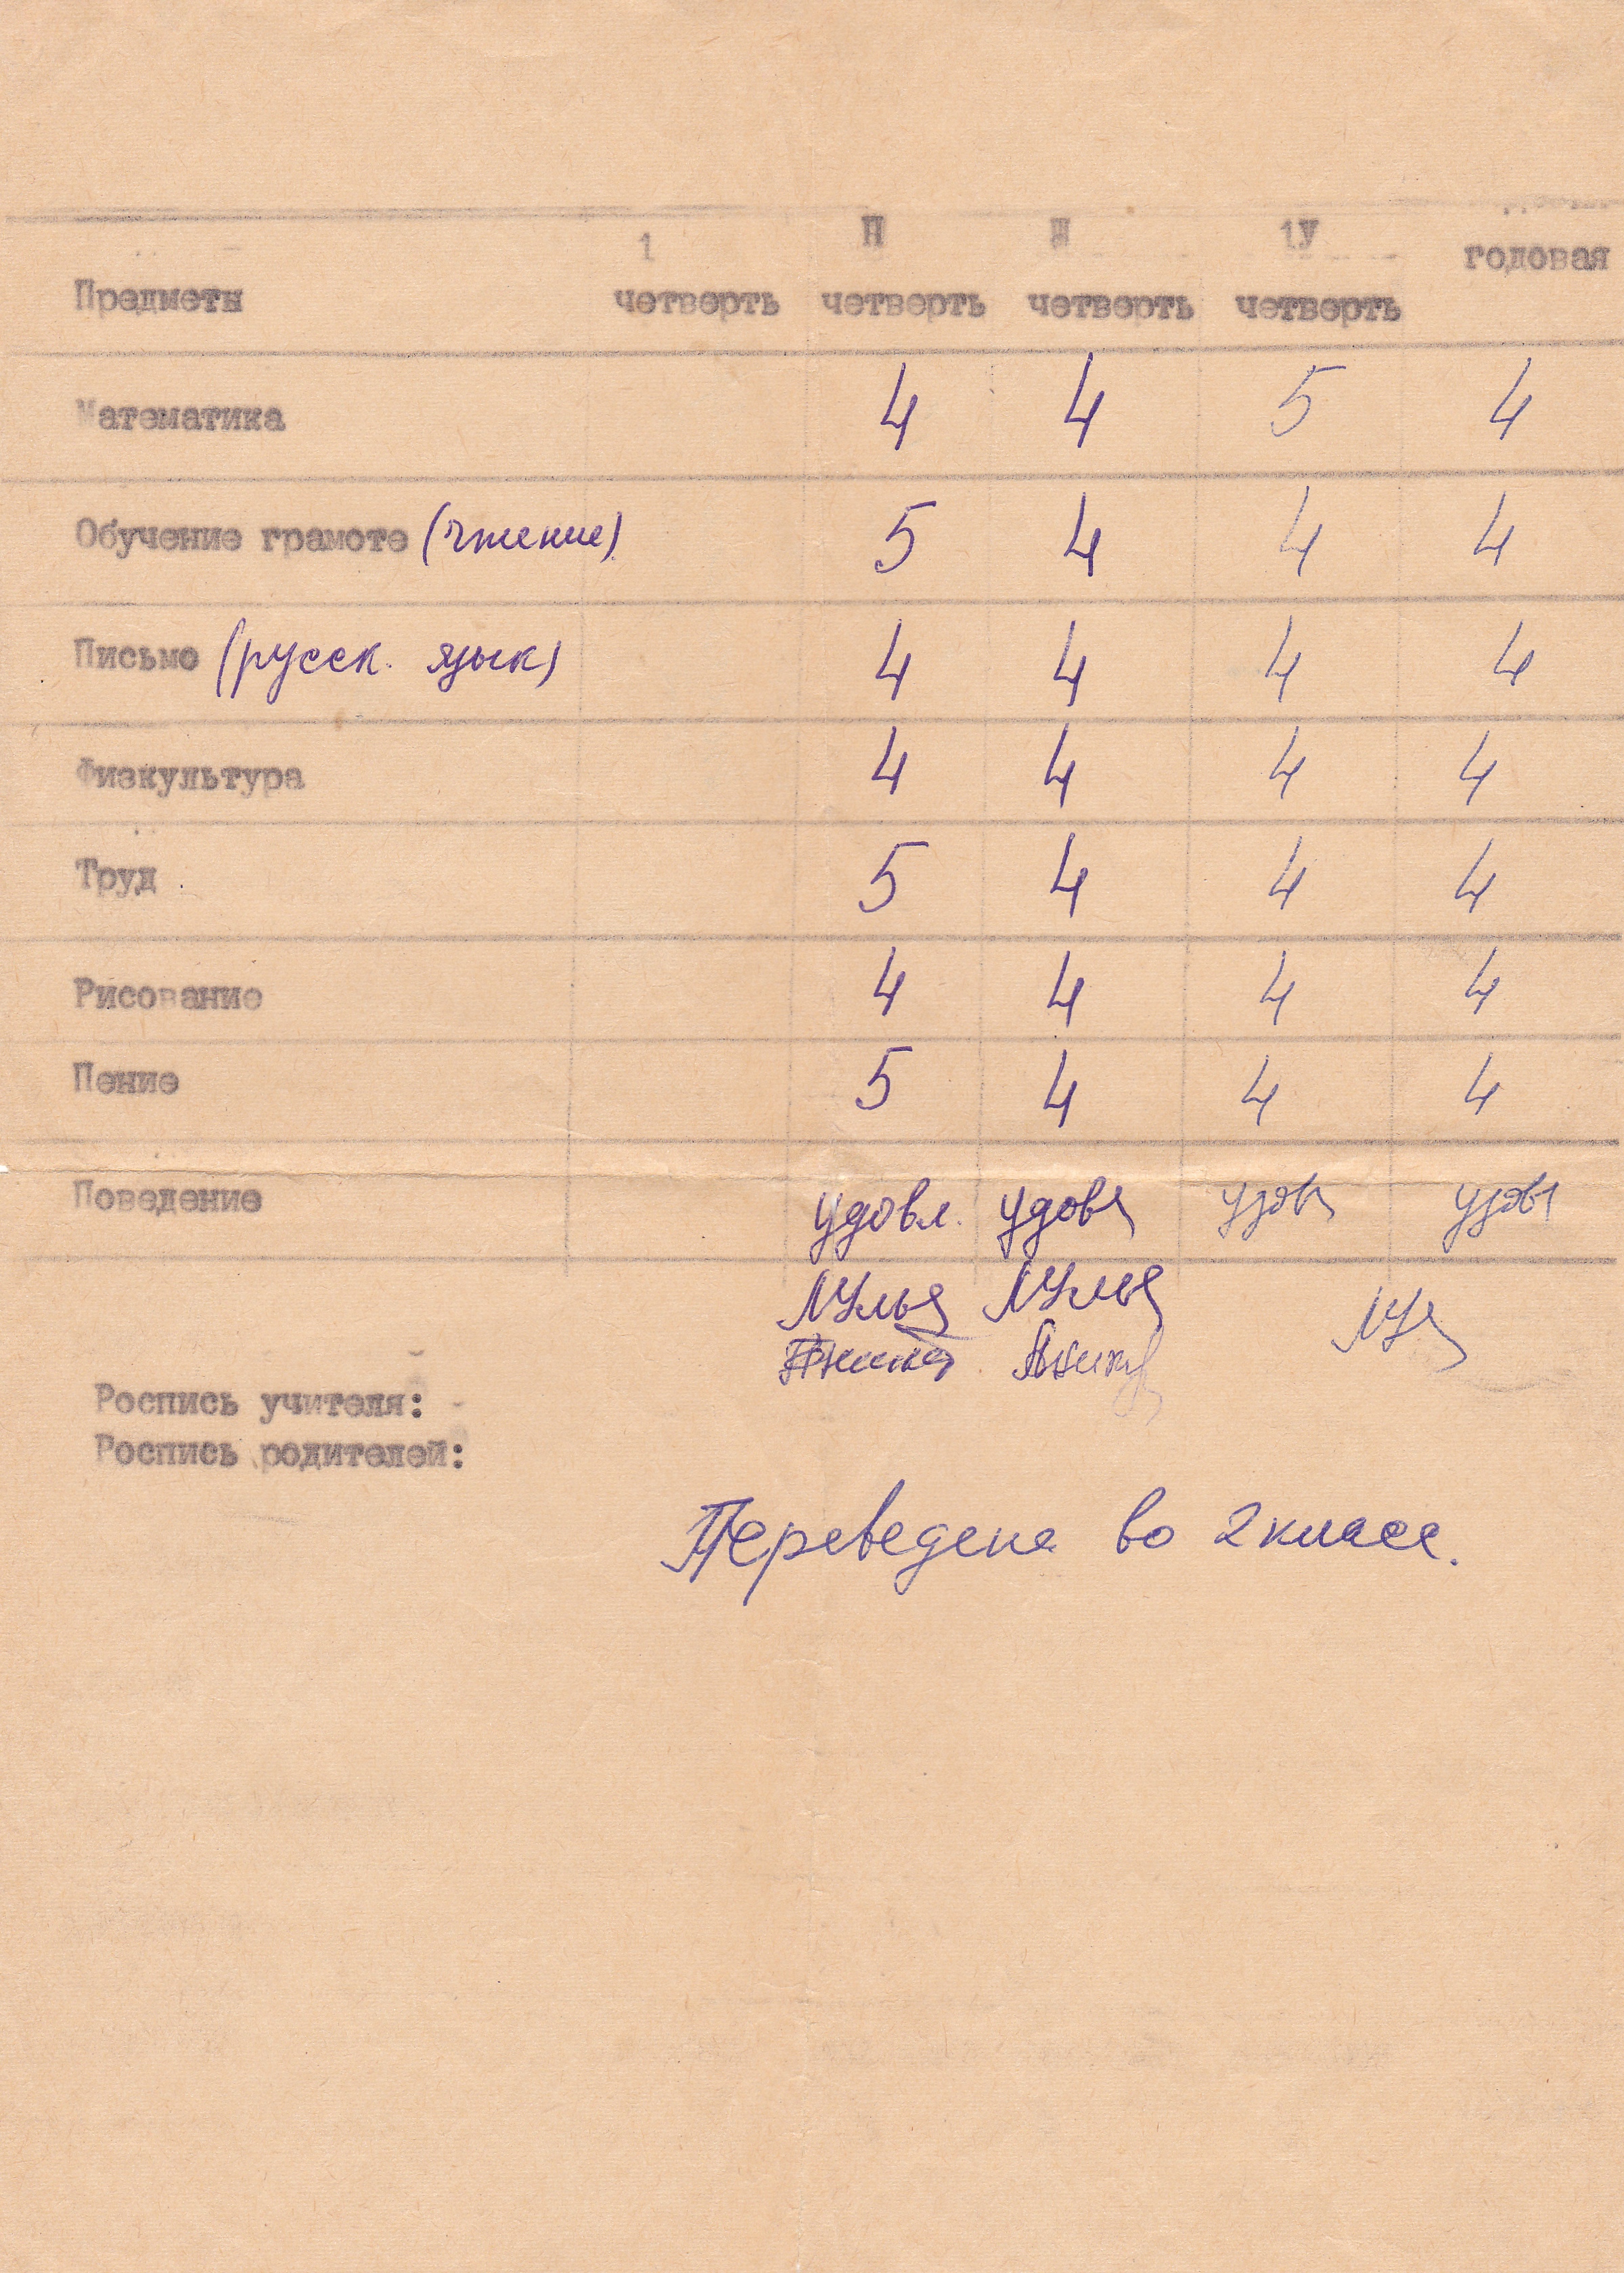 1 П Ш 1У годовая
Предметы четверть четверть четверть четверть
Математика 4 4 5 4
Обучение грамоте (чтение) 5 4 4 4
Письмо (русск. язык) 4 4 4 4
Физкультура 4 4 4 4
Труд 5 4 4 4
Рисование 4 4 4 4
Пение 5 4 4 4
Поведение удовл. удовл удовл удовл
Роспись учителя:
Роспись родителей:
Переведена во 2 класс.